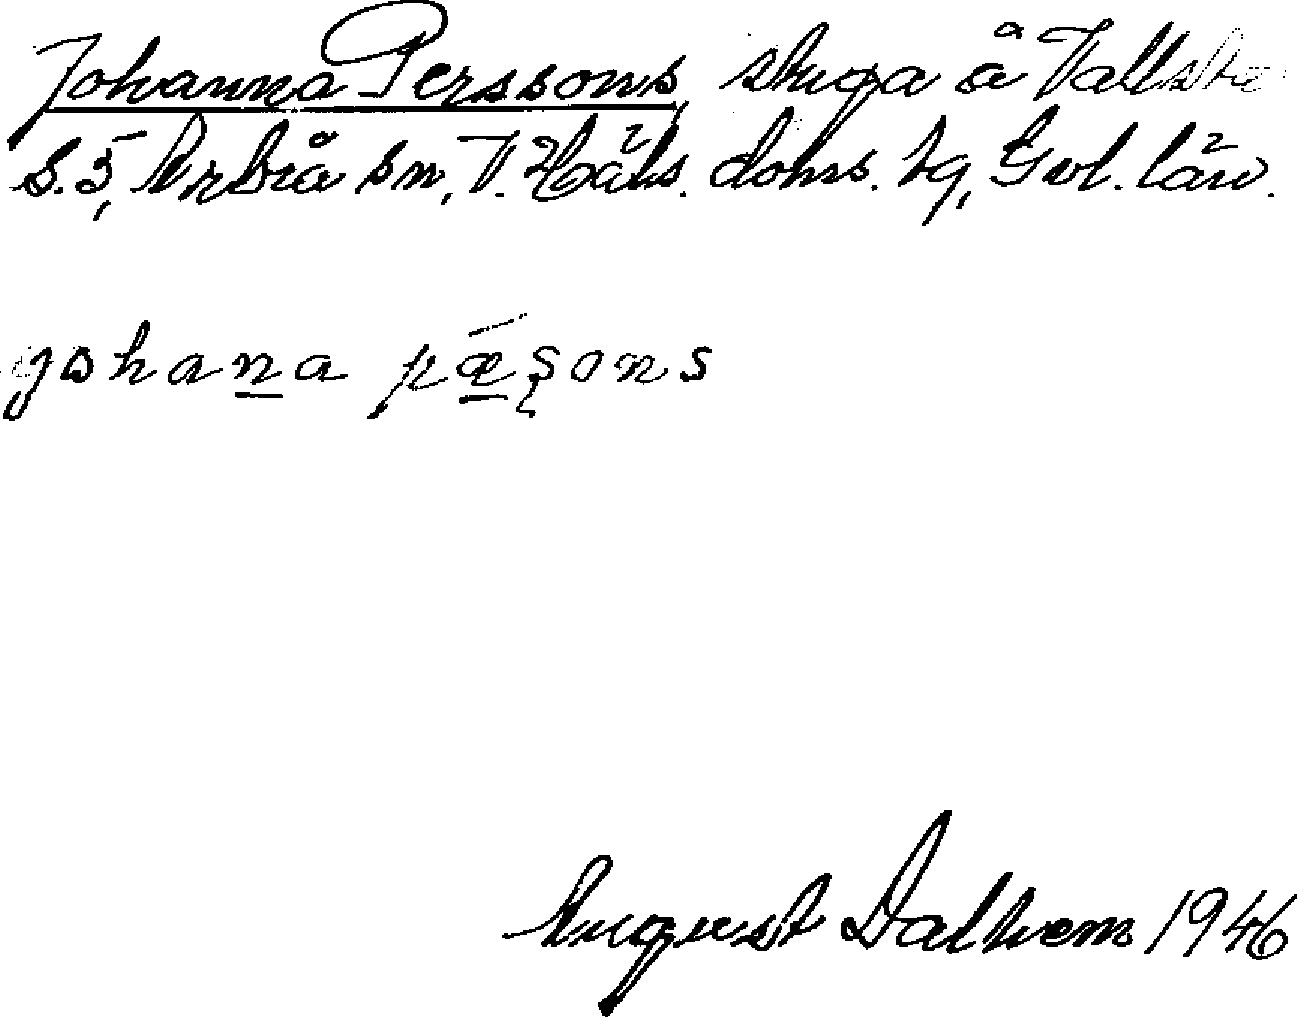 Johanna Perssons, stuga å Vallsta
S. 5, Arbrå sn, V. Häls. doms. hg, Gvl. län.
johana pæsons
August Dalhem 1946